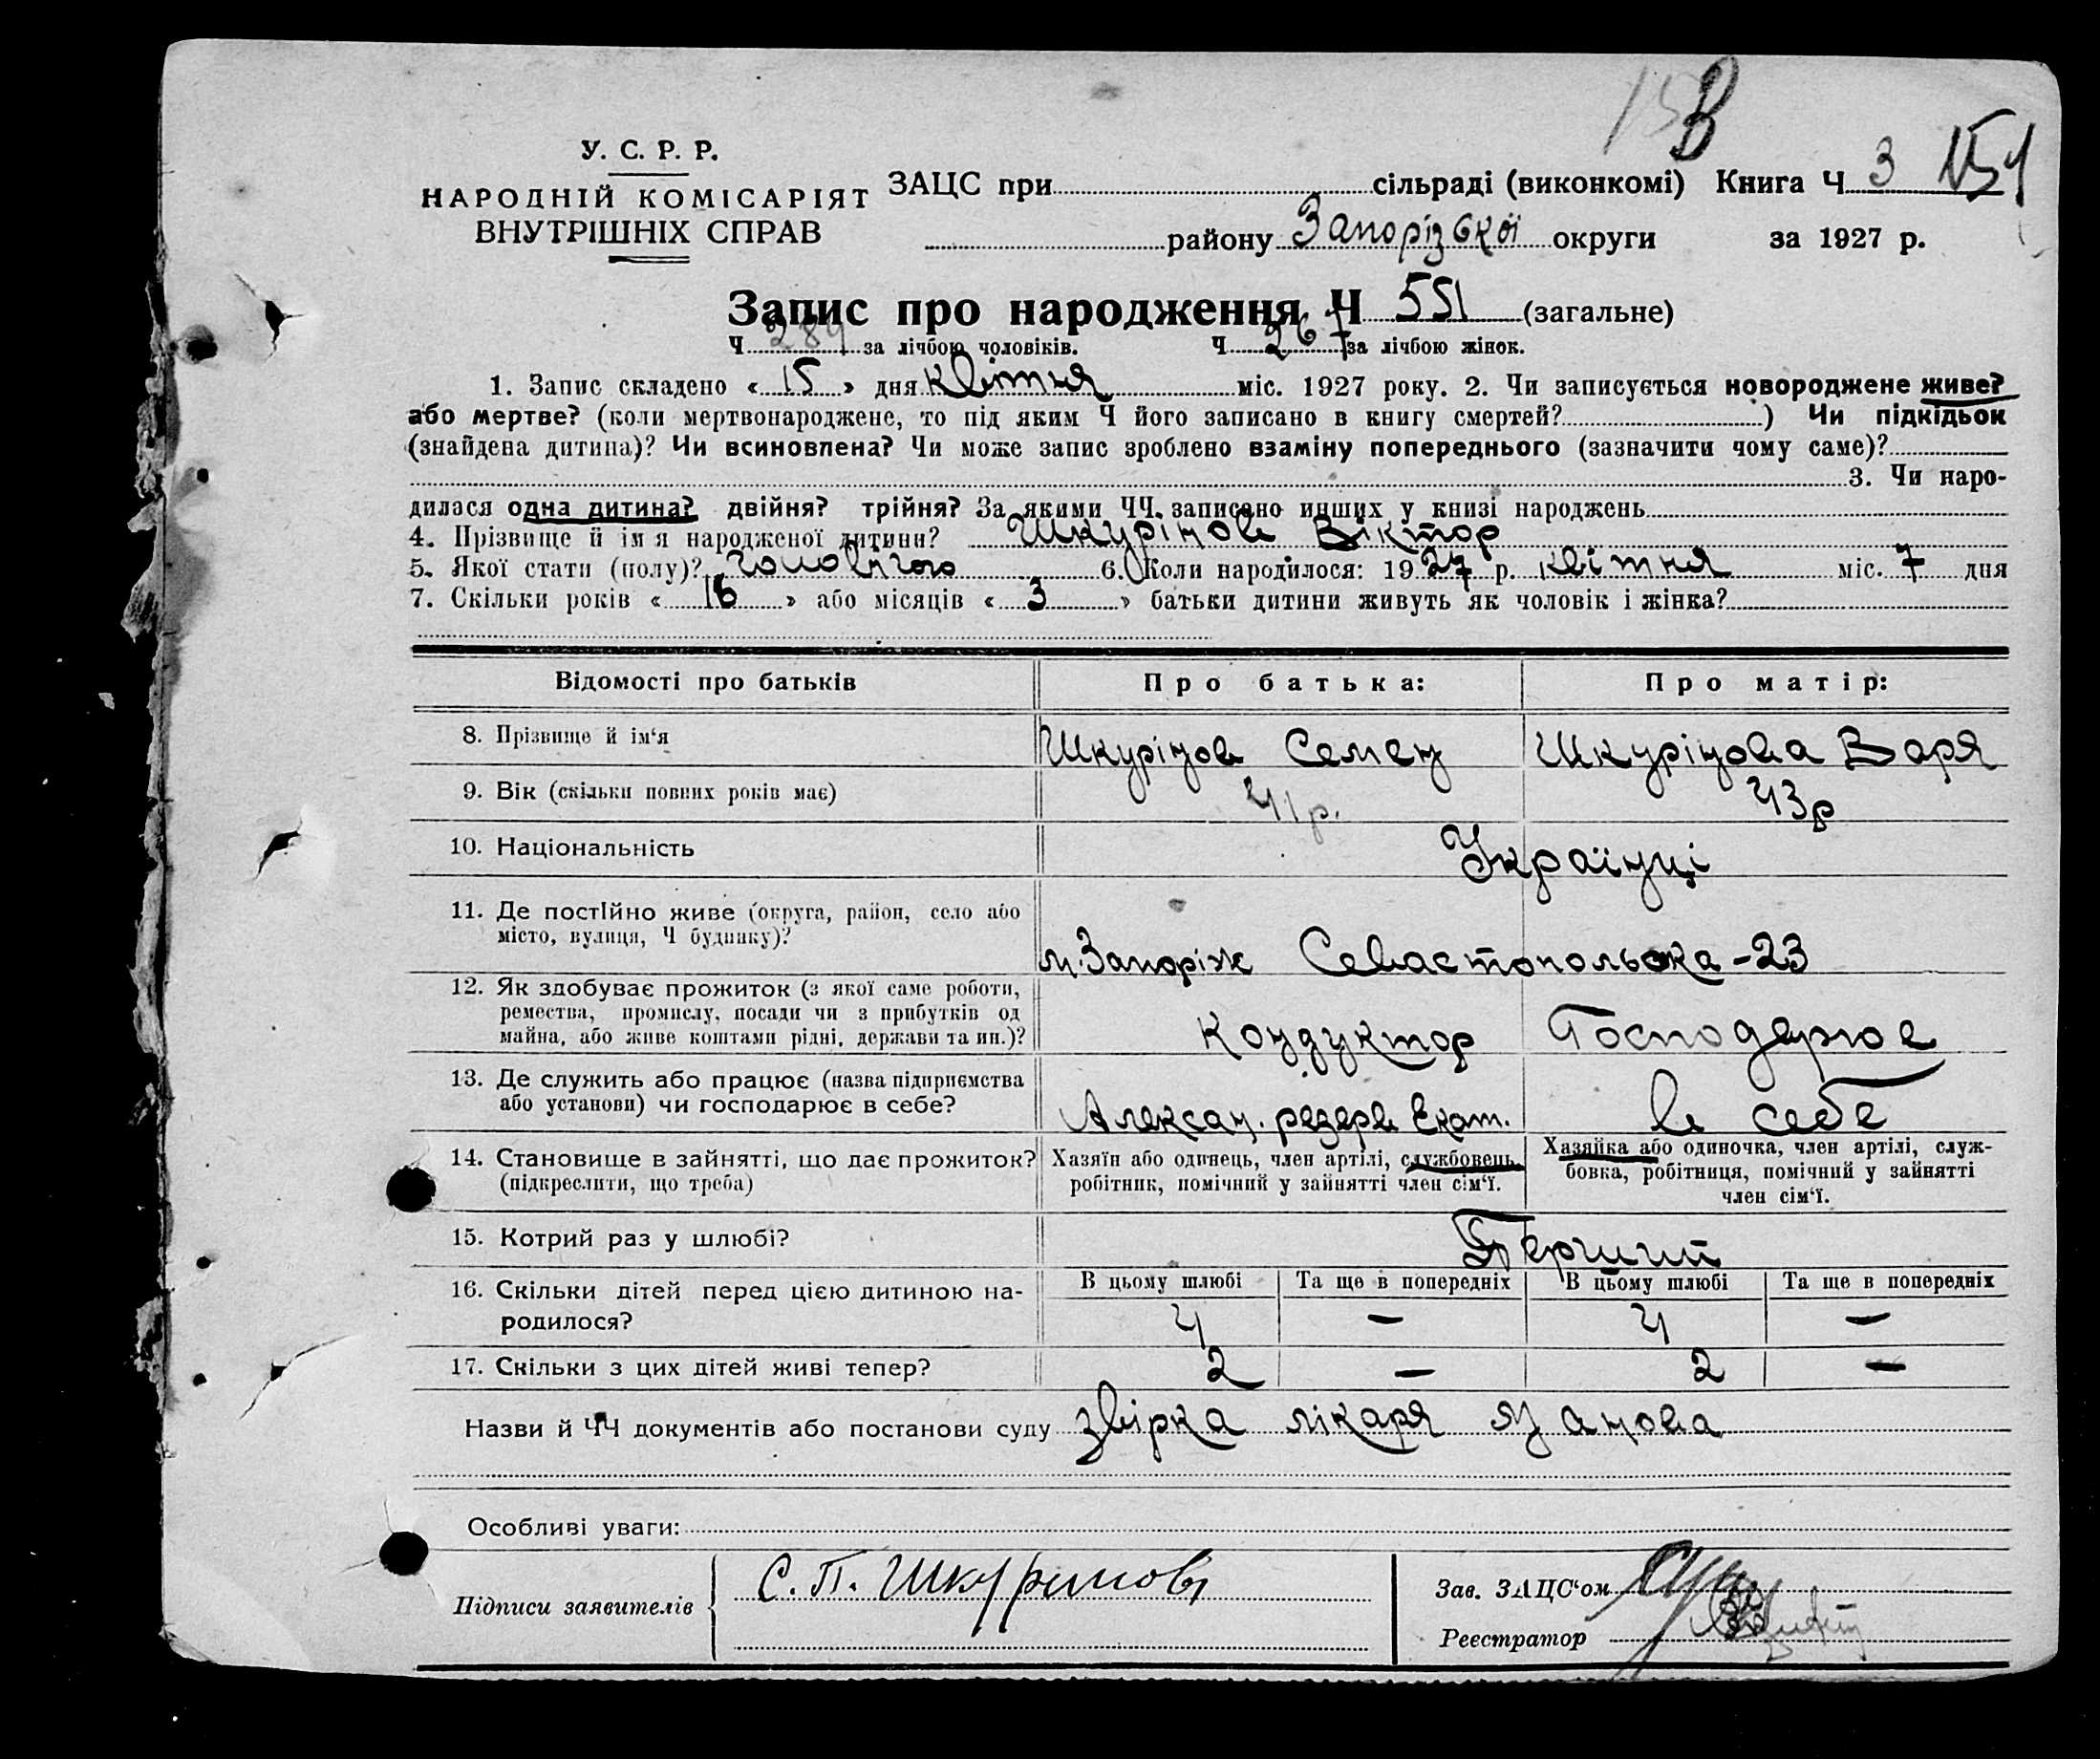 В
У. С. Р. Р.
НАРОДНІЙ КОМІСАРІЯТ
ВНУТРІШНІХ СПРАВ
ЗАЦС при сільраді (виконкомі) Книга Ч 3 151
району Запорізької округи за 1927 р.
Запис про народження Ч 551 (загальне)
Ч 284 за лічбою чоловіків. Ч 267 за лічбою жінок.
1. Запис складено « 15 » дня квітня міс. 1927 року. 2. Чи записується новороджене живе?
або мертве? (коли мертвонароджене, то під яким Ч його записано в книгу смертей? ) Чи підкідьок
(знайдена дитина)? Чи всиновлена? Чи може запис зроблено взаміну попереднього (зазначити чому саме)?
3. Чи наро-
дилася одна дитина? двійня? трійня? За якими ЧЧ. записано инших у книзі народжень
4. Прізвище й ім я народженої дитини? Шкурінов Віктор
5. Якої стати (полу)? чоловічого 6. Коли народилося: 1927 р. квітня міс. 7 дня
7. Скільки років « 16 » або місяців « 3 » батьки дитини живуть як чоловік і жінка?
Відомості про батьків Про батька: Про матір:
8. Прізвище й ім‘я Шкурінов Семен Шкурінова Варя
9. Вік (скільки повних років має) 41 р. 43 р
10. Національність Українці
11. Де постійно живе (округа, район, село або
місто, вулиця, Ч будинку)? м. Запоріж Севастопольська - 23
12. Як здобуває прожиток (з якої саме роботи,
ремества, промислу, посади чи з прибутків од
майна, або живе коштами рідні, держави та ин.)? Кондуктор Господарює
13. Де служить або працює (назва підприємства
або установи) чи господарює в себе? Алексан. резерв Екат. в себе
14. Становище в зайнятті, що дає прожиток?
(підкреслити, що треба)
Хазяїн або одинець, член артілі, службовець,
робітник, помічний у зайнятті член сім‘ї.
Хазяйка або одиночка, член артілі, служ-
бовка, робітниця, помічний у зайнятті
член сім‘ї.
15. Котрий раз у шлюбі? Перший
В цьому шлюбі Та ще в попередніх В цьому шлюбі Та ще в попередніх
16. Скільки дітей перед цією дитиною на-
родилося? 4 — 4 —
17. Скільки з цих дітей живі тепер? 2 — 2 —
Назви й ЧЧ документів або постанови суду звірка лікаря
Особливі уваги:
Підписи заявителів С. П. Шкуринов
Зав. ЗАЦС‘ом
Реєстратор